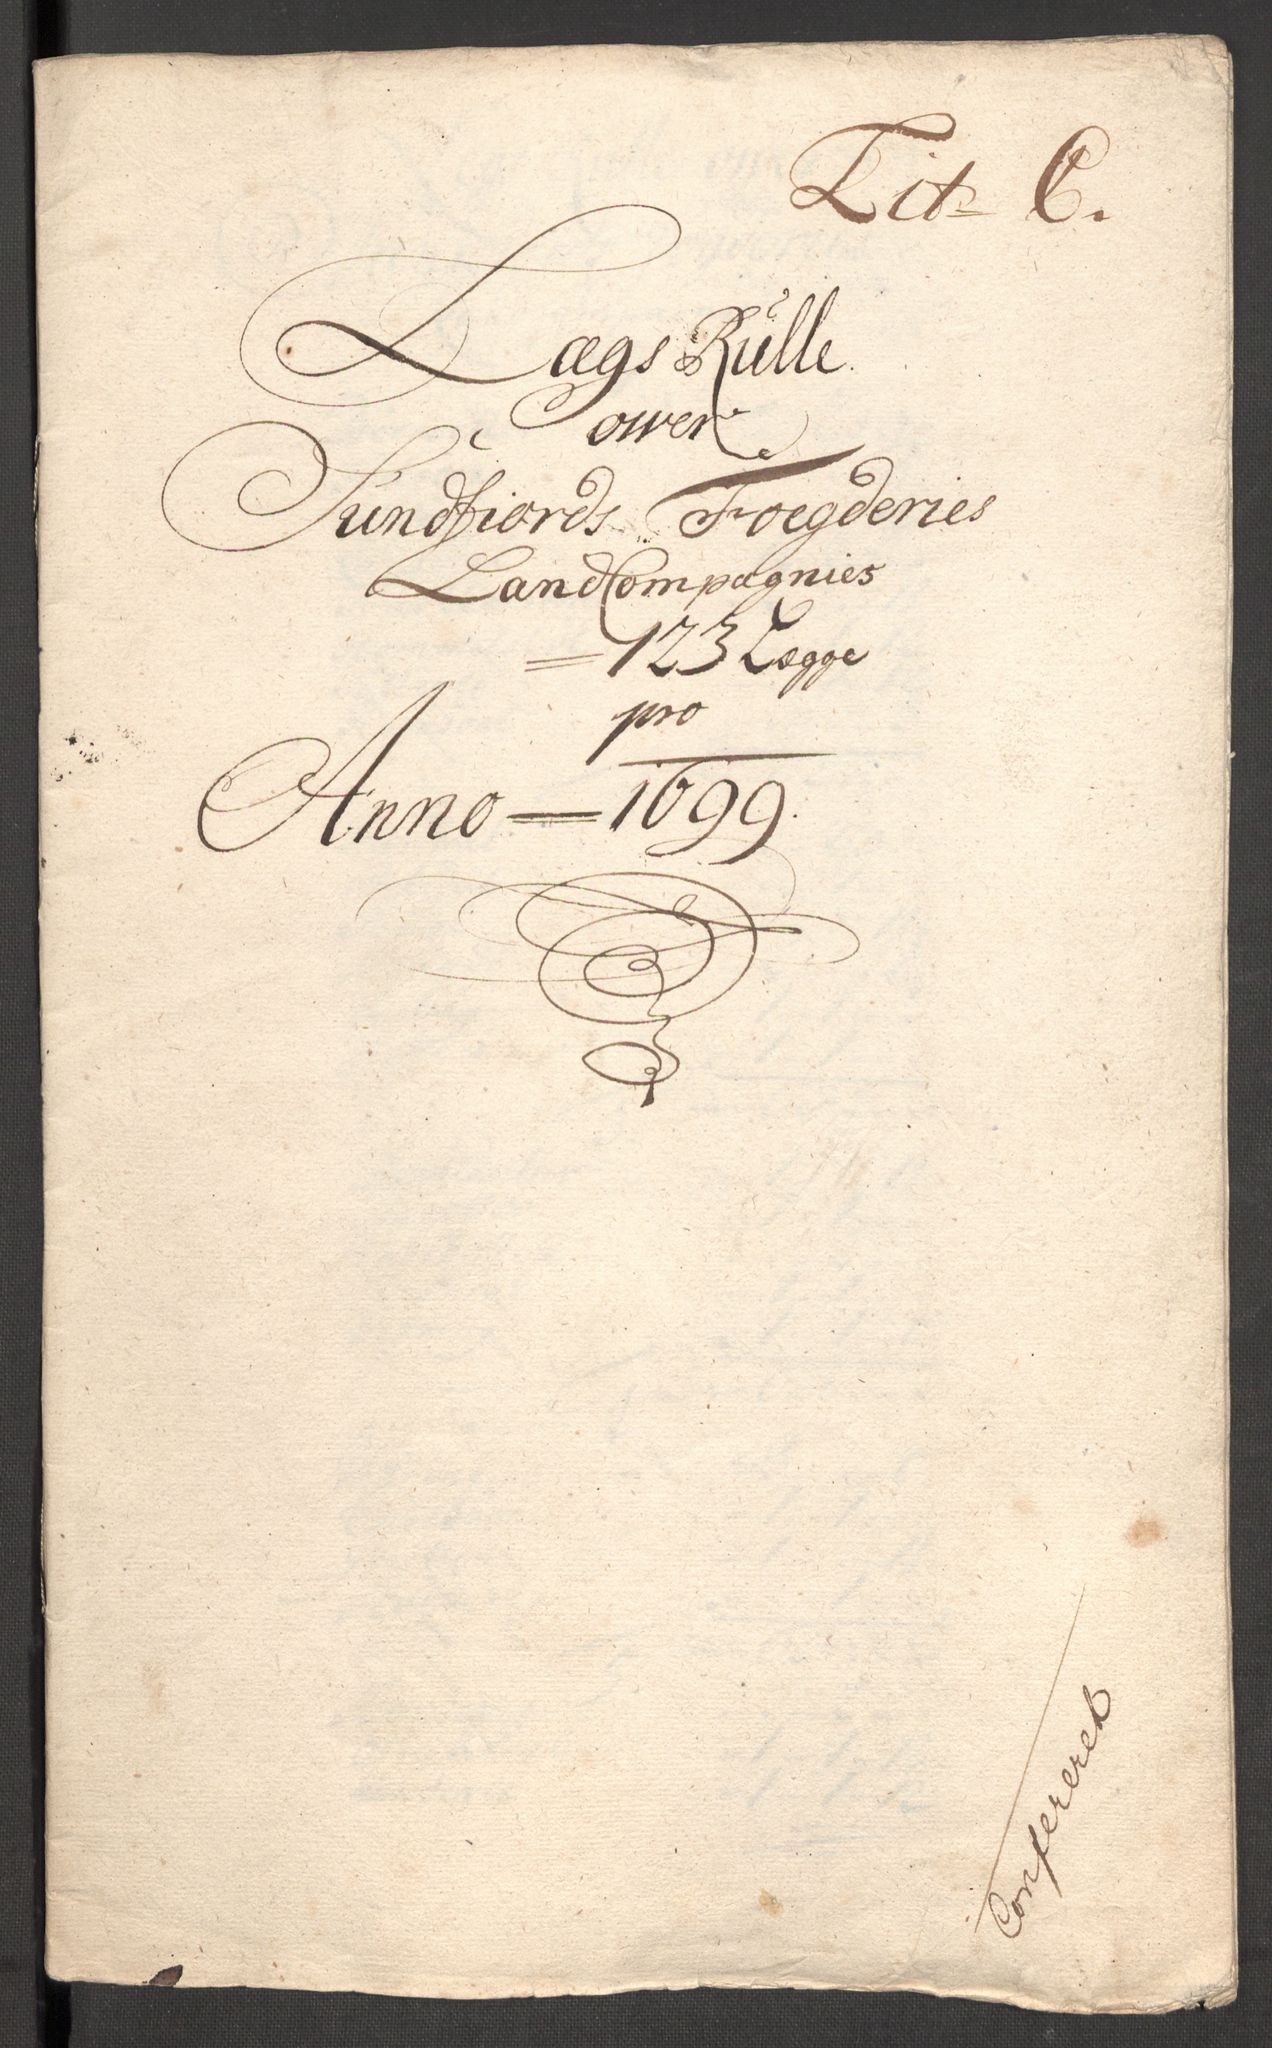 Lit. C.
Lægs Rulle
ower
Sundfiords Foegderies
Land Compagnies
= 123 Lægge
pro
Anno = 1699.
Confereret